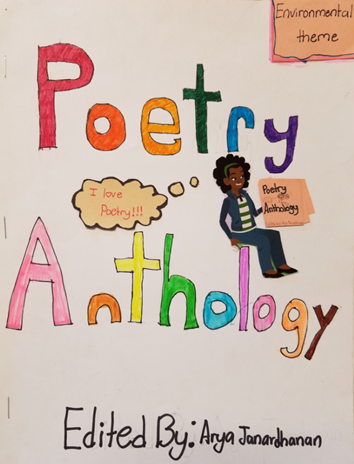 Environmental
theme
Poetry
I love
Poetry!!!
Poetry
Anthology
Anthology
Edited By: Arya Janardhanan